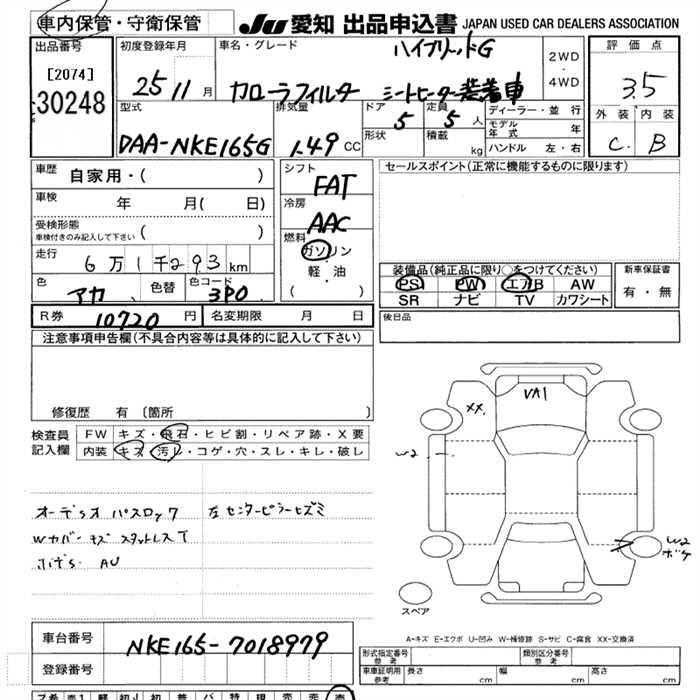 車内保管・守衛保管
JU 愛知 出品申込書 JAPAN USED CAR DEALERS ASSOCIATION
出品番号
[2074]
30248
初度登録年月
25 11 月
車名・グレード
ハイブリッドG
カローラフィルダー シートヒーター装着車
2WD
・
4WD
評価点
3.5
外装 内装
C. B
型式
DAA-NKE165G
排気量
1.49 CC
ドア
5
形状
定員
5 人
積載
kg
ディーラー・並行
モデル年式 年
ハンドル 左・右
車歴
自家用・( )
車検
年 月( 日)
受検形態
車検付きのみ記入して下さい ( )
走行
6万1千293 km
色
アカ
色替
色コード
3P0
シフト
FAT
冷房
AAC
燃料
ガソリン
軽・油
( )
セールスポイント(正常に機能するものに限ります)
装備品(純正品に限り○をつけてください)
PS PW エアB AW
SR ナビ TV カワシート
新車保証書
有・無
R券 10720 円
名変期限 月 日
後日品
注意事項申告欄(不具合内容等は具体的に記入して下さい)
修復歴 有 〔箇所 〕
検査員記入欄
FW キズ・飛石・ヒビ割・リペア跡・X要
内装 キズ・汚し・コゲ・穴・スレ・キレ・破レ
オーディオ パスロック 左センターピラーヒズミ
Wカバーキズ スタットレスT
AU
XX.
VA1
W2
W2
ボケ
スペア
A-キズ E-エクボ U-凹み W-補修跡 S-サビ C-腐食 XX-交換済
車台番号
NKE165-7018979
登録番号
形式指定番号
参考
類別区分番号
参考
車両証明用
参考
長さ cm
幅 cm
高さ cm